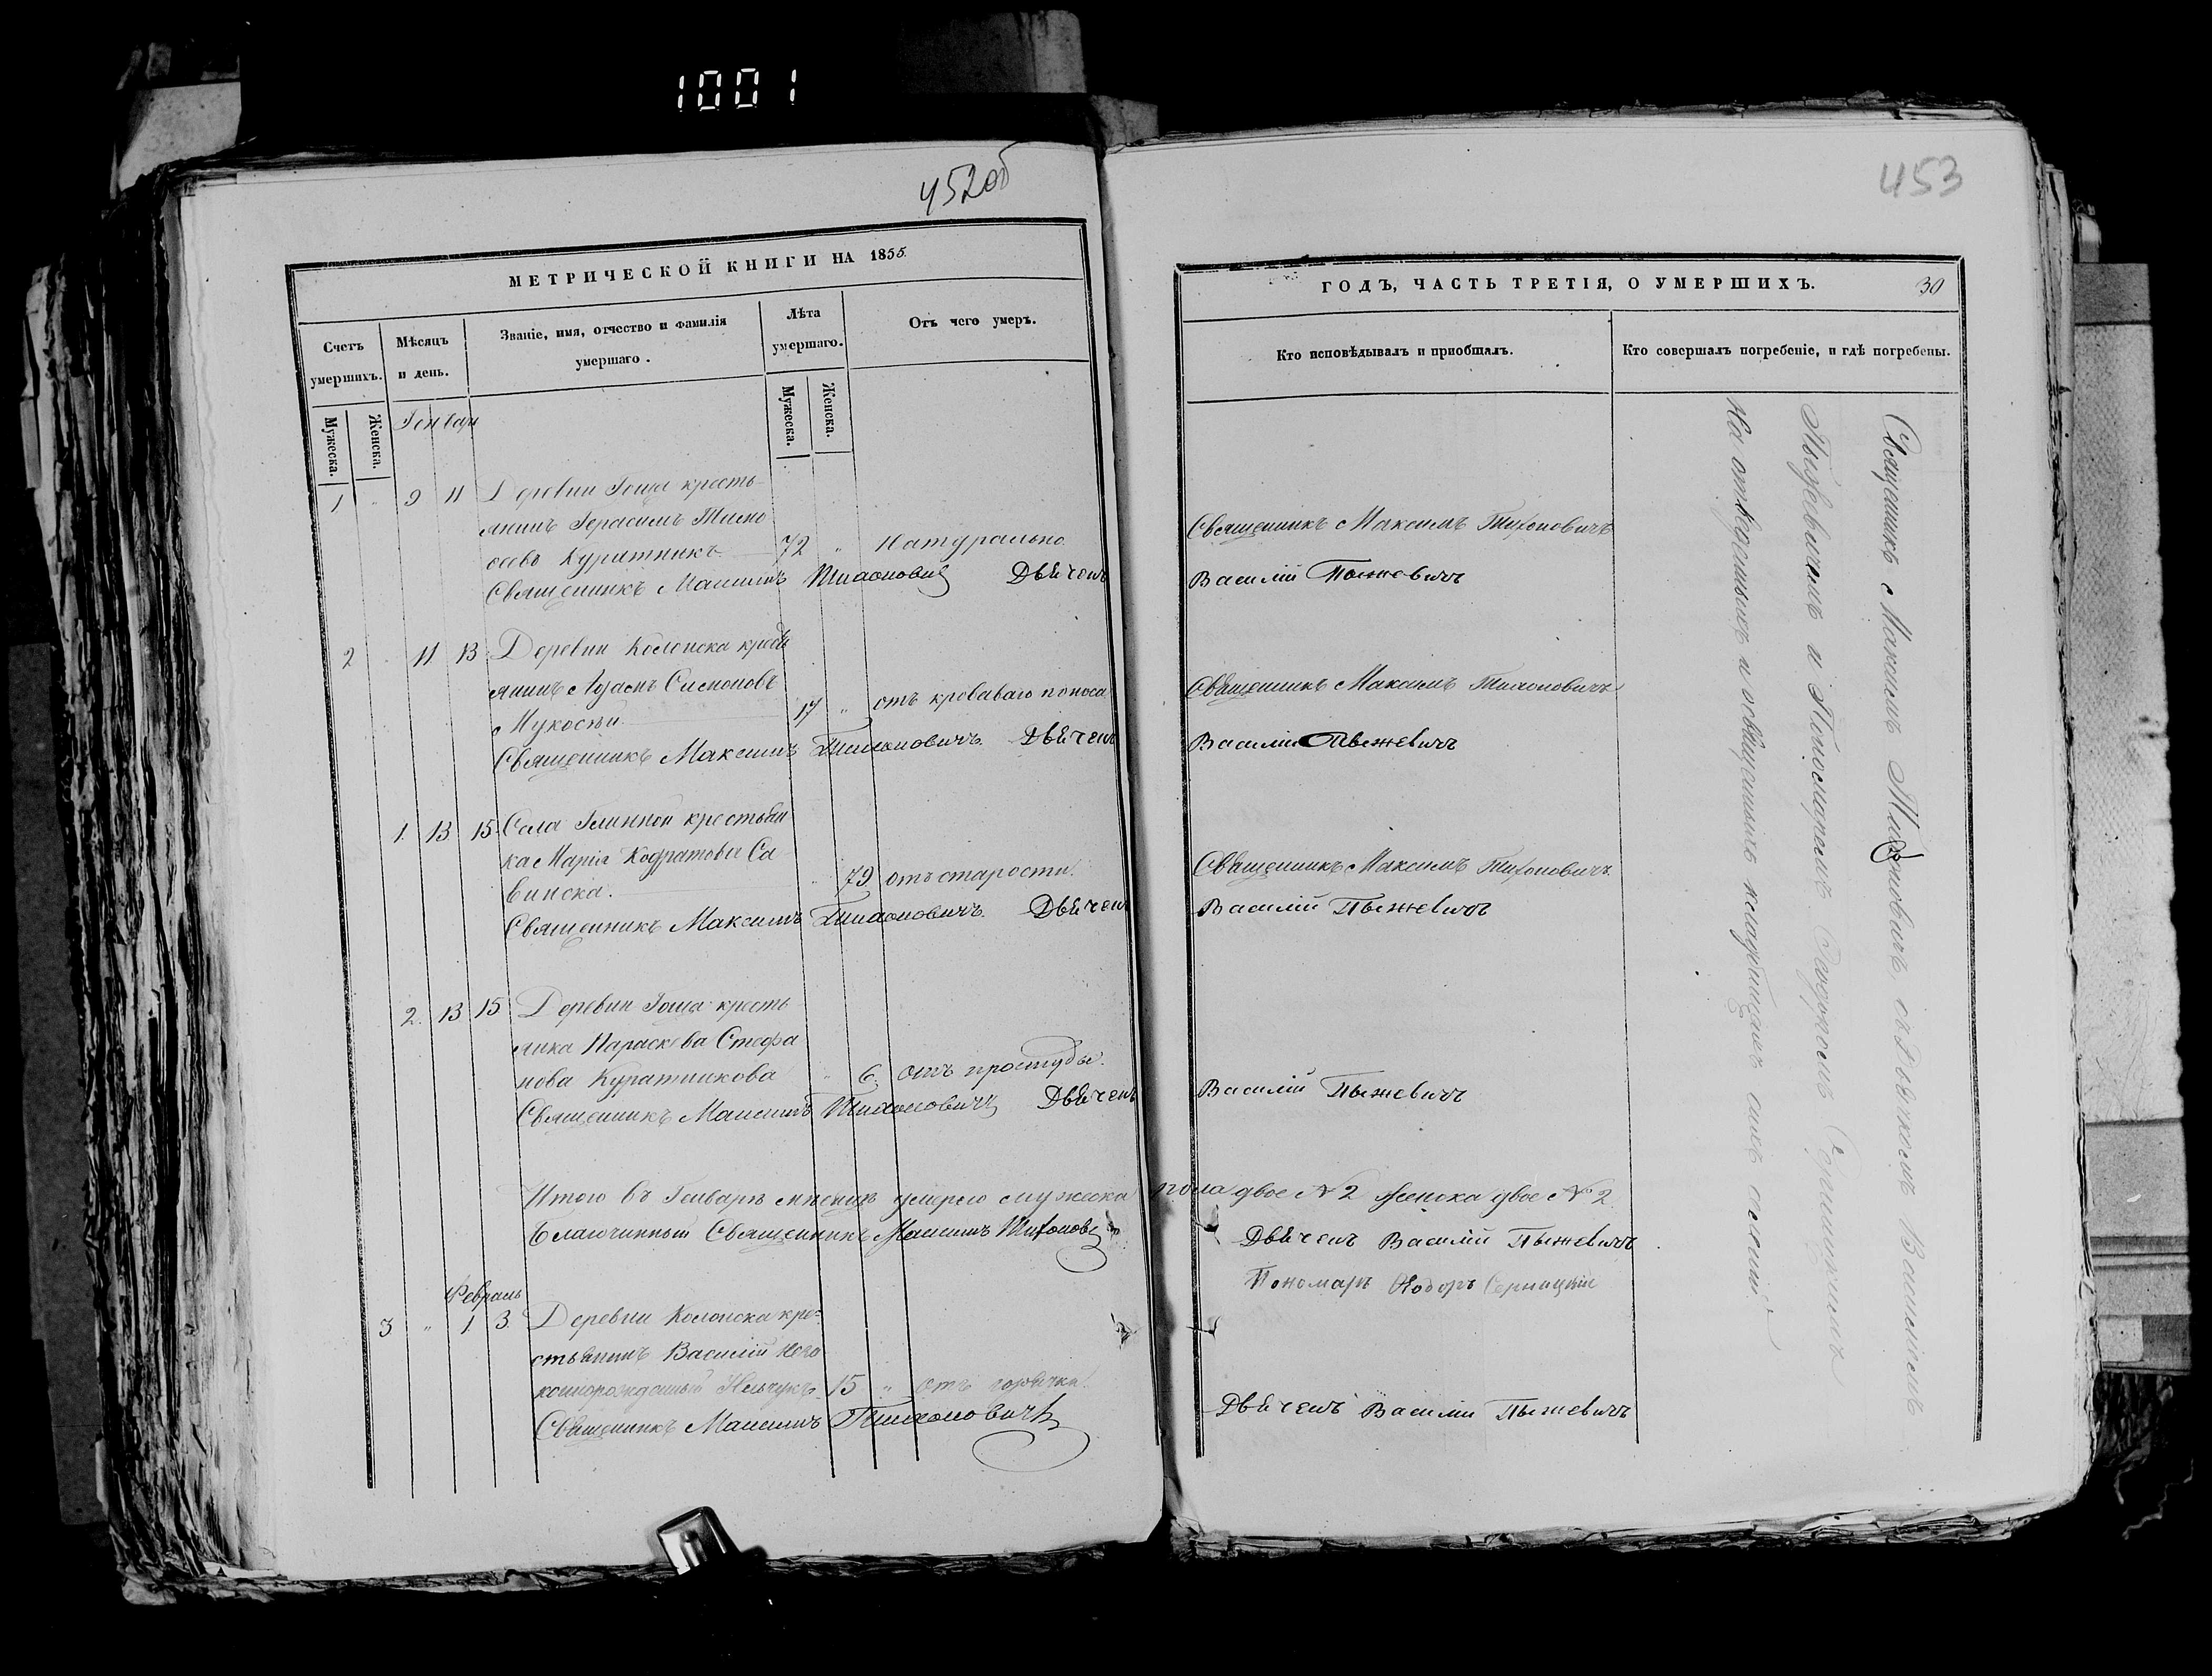 1001
452об
МЕТРИЧЕСКОЙ КНИГИ НА 1855.
Счетъ умершихъ.
Мѣсяцъ и день.
Званіе, имя, отчество и фамилія умершаго.
Лѣта умершаго.
Отъ чего умеръ.
Мужеска.
Женска.
Мужеска.
Женска.
Генварь
1 " 9 11 Деревни Гоща кресть-
янинъ Герасимъ Тимо
оеевъ Куратникъ 72 " Натурально.
Священникъ Максимъ Тихоновичъ Дьяченъ
2 11 13 Деревни Колонска кресть
янинъ Адамъ Симоновъ
Мукосѣй 17 " отъ кроваваго поноса
Священникъ Максимъ Тихоновичъ. Дьяченъ
1. 13 15 Села Глинной крестьян
ка Марія Кодратова Са
винска. " 79 отъ старости.
Священникъ Максимъ Тихоновичъ. Дьяченъ
2. 13 15 Деревни Гоща кресть
янка Параскева Стефа
нова Куратникова " 6. отъ простуды.
Священникъ Максимъ Тихоновичъ Дьяченъ
Итого въ Генварѣ мѣсяцѣ умерло мужеска
Благочинный Священникъ Максимъ Тихоновичъ
Февраль
3 " 1 3 Деревни Колонска кре-
стьянинъ Василій Неза
коннорожданый 15 " отъ горячки.
Священникъ Максимъ Тихоновичъ
453
ГОДЪ, ЧАСТЬ ТРЕТІЯ, О УМЕРШИХЪ. 30
Кто исповѣдывалъ и пріобщалъ.
Кто совершалъ погребеніе, и гдѣ погребены.
Священникъ Максимъ Тихоновичъ
Василій Пыжевичъ
Священникъ Максимъ Тихоновичъ
Василій Пыжевичъ
Священникъ Максимъ Тихоновичъ.
Василій Пыжевичъ
Василій Пыжевичъ
пола двое №2 женска двое №2.
Дьяченъ Василій Пыжевичъ
Пономарь Ѳеодоръ Серницкій
Дьяченъ Василій Пыжевичъ
Священникъ Максимъ Тихоновичъ, съ Дьячкомъ Василіемъ
Пыжевичемъ и Пономаремъ
На отведенномъ и освященномъ кладбищѣ